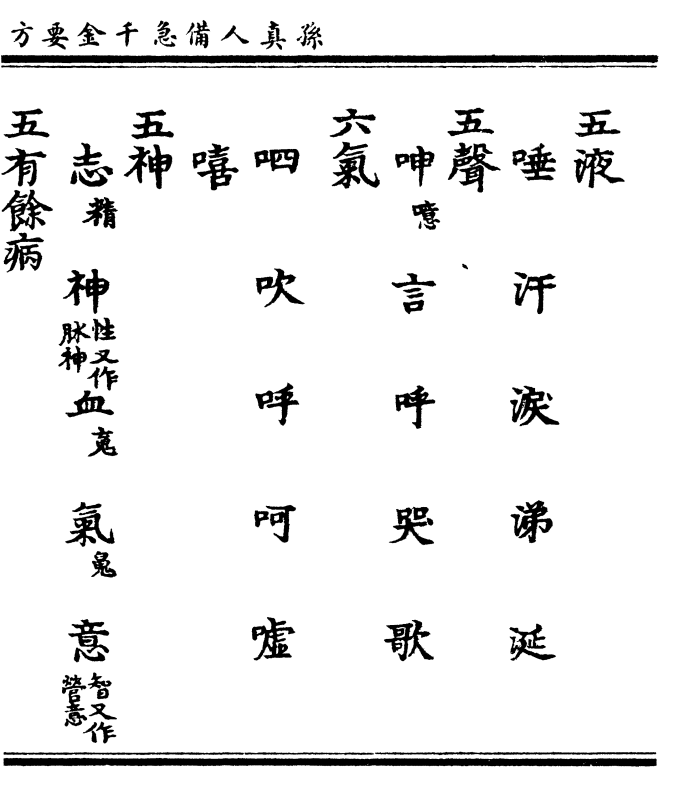 孫真人備急千金要方
五液
唾 汗 淚 涕 涎
五聲
呻噫 言 呼 哭 歌
六氣
呬 吹 呼 呵 噓
嘻
五神
志精 神性又作脉神 血䰟 氣魄 意智又作營意
五有餘病